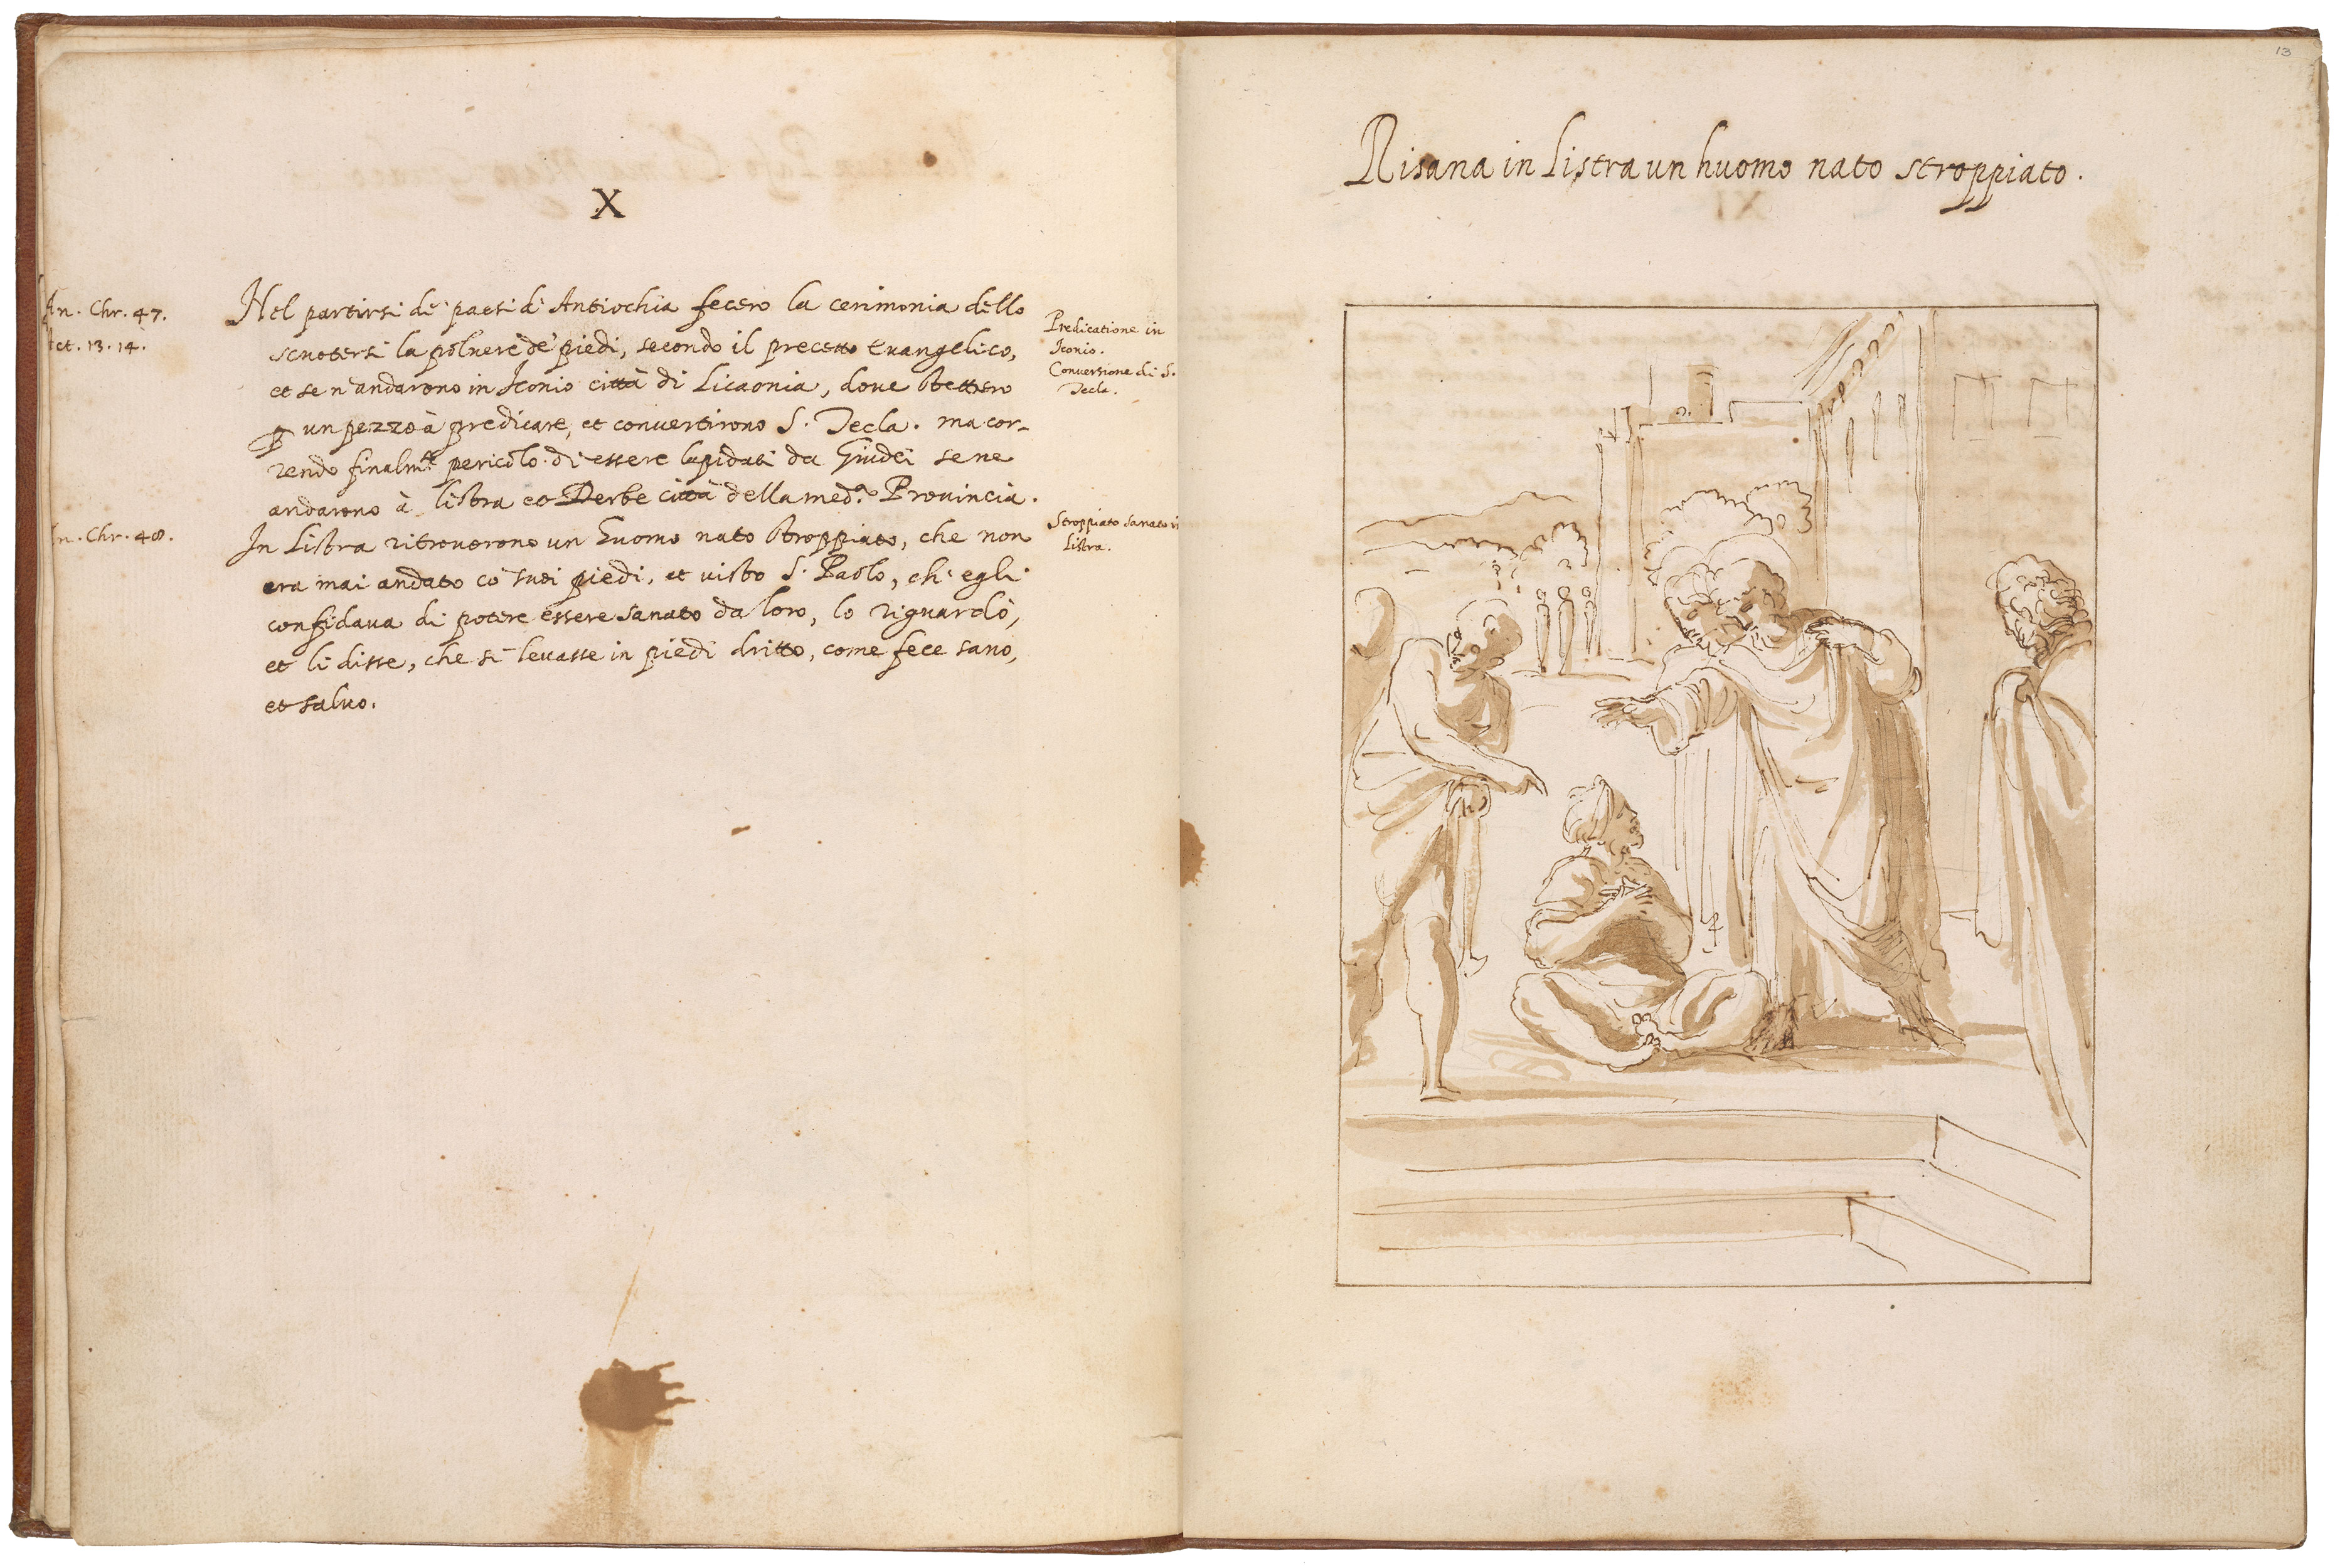 X
An. Chr. 47.
Act. 13. 14.
Nel partirsi de paesi di Antiochia fecero la cerimonia dello
scuotersi la poluere de piedi, secondo il precetto Euangelico,
et se n'andarono in Iconio città di Licaonia, doue stettero
ꝑ un pezzo à predicare, et conuertirono S. Tecla. ma cor-
rendo finalmte pericolo di essere lapidati da Giudei se ne
andarono à Listra et Derbe città della meda Prouincia.
Predicatione in
Iconio.
Conuersione di S.
Tecla.
An. Chr. 48.
In Listra ritrouorono un huomo nato stroppiato, che non
era mai andato co suoi piedi, et uisto S. Paolo, ch' egli
confidaua di potere essere sanato da loro, lo riguardò,
et li disse, che si leuasse in piedi dritto, come fece sano,
et saluo.
Stroppiato sanato in
Listra.
13
Risana in Listra un huomo nato stroppiato.